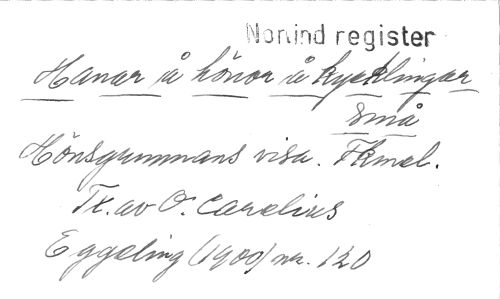 Nonind register
Hanar å hönor å kycklingar
små
Hönsgummans visa. Fkmel.
Tx. av O. Carelius
Eggeling (1900) nr. 120